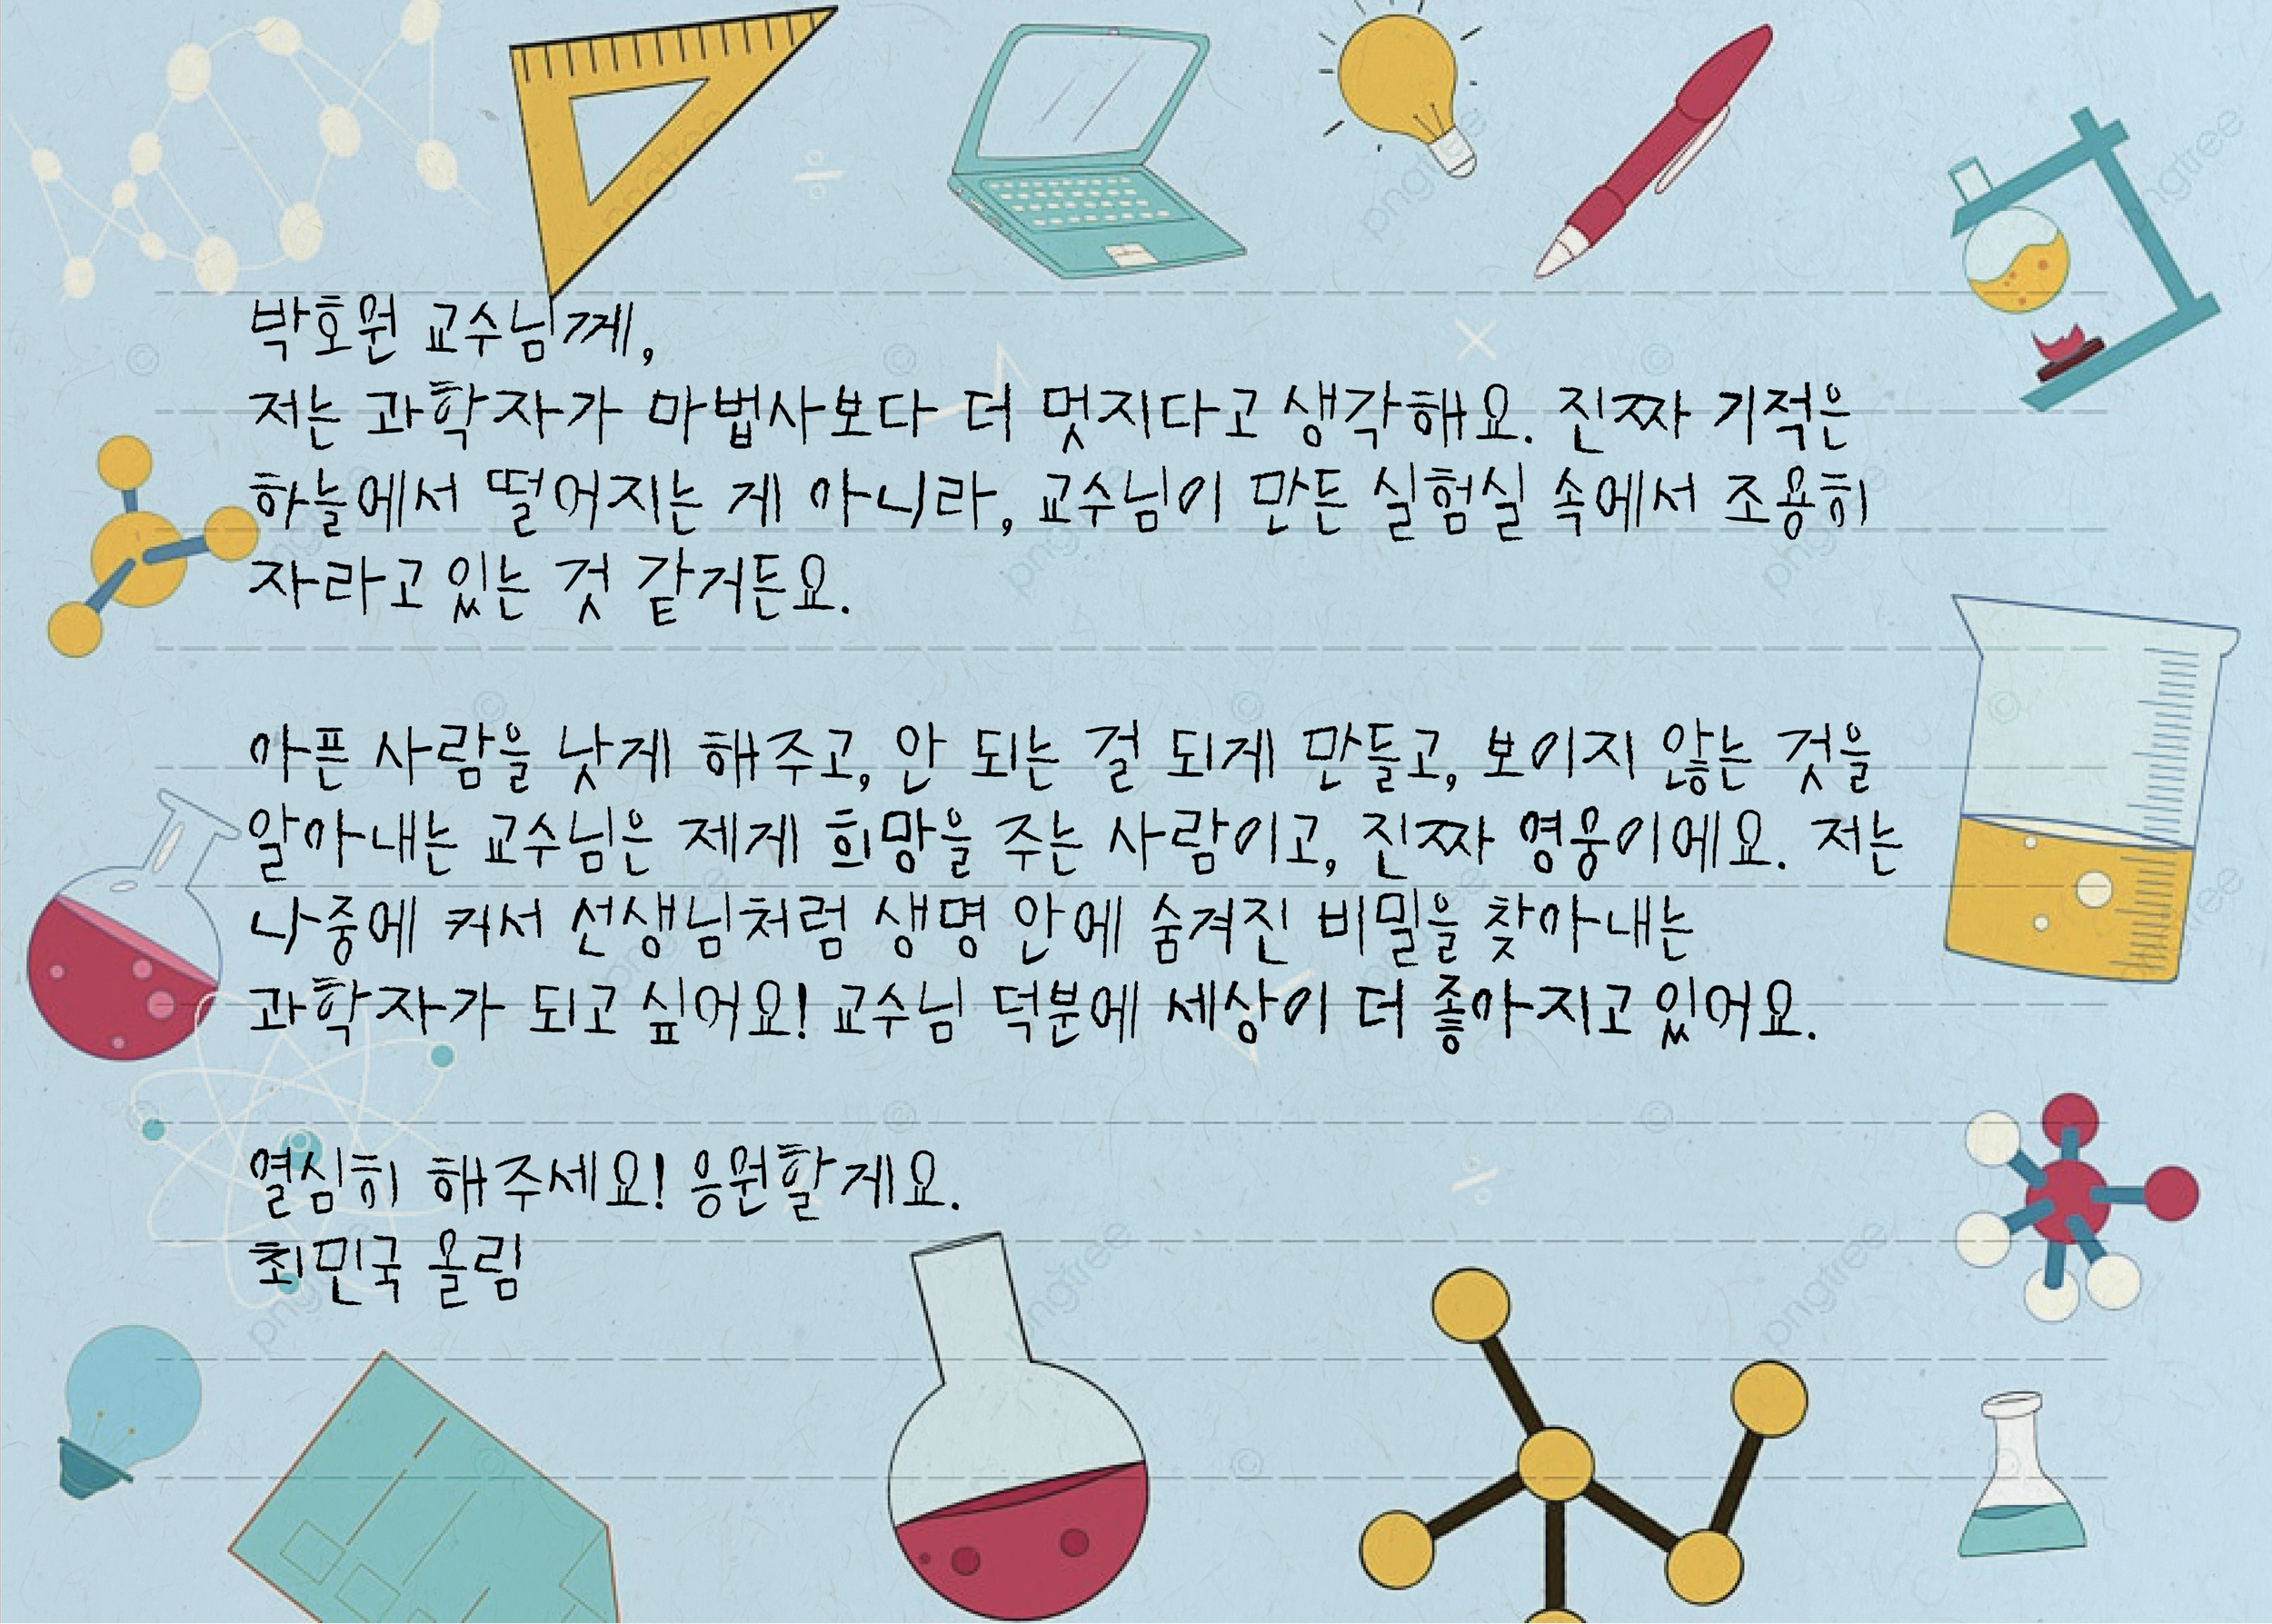 박호원 교수님께,
저는 과학자가 마법사보다 더 멋지다고 생각해요. 진짜 기적은
하늘에서 떨어지는 게 아니라, 교수님이 만든 실험실 속에서 조용히
자라고 있는 것 같거든요.
아픈 사람을 낫게 해주고, 안 되는 걸 되게 만들고, 보이지 않는 것을
알아내는 교수님은 제게 희망을 주는 사람이고, 진짜 영웅이에요. 저는
나중에 커서 선생님처럼 생명 안에 숨겨진 비밀을 찾아내는
과학자가 되고 싶어요! 교수님 덕분에 세상이 더 좋아지고 있어요.
열심히 해주세요! 응원할게요.
최민국 올림